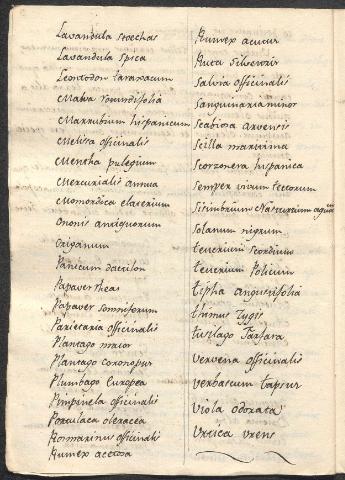 Lavandula stoechas
Lavandula spica
Leontodon taraxacum
Malva rotundifolia
Marrubium hispanicum
Melissa officinalis
Mentha pulegium
Mercurialis annua
Momordica elaterium
Ononis antiquorum
Origanum
Panicum dactilon
Papaver rheas
Papaver somniforum
Parietaria officinalis
Plantago maior
Plantago coronopus
Plumbago Europea
Pimpinela officinalis
Portulaca oleracea
Rosmarinus officinalis
Rumex acetosa
Rumex acutus
Ruta silvestris
Salvia officinalis
Sanguinaria minor
Scabiosa arvensis
Scilla maritima
Scorzonera hispanica
Semper vivum tectorum
Sisimbrium Nasturtium aquaticum
Solanum nigrum
teucrium scordium
teucrium Polium
tipha angustifolia
thimus zygis
tusilago Farfara
Vervena officinalis
verbascum tapsus
Viola odorata
Vrtica urens